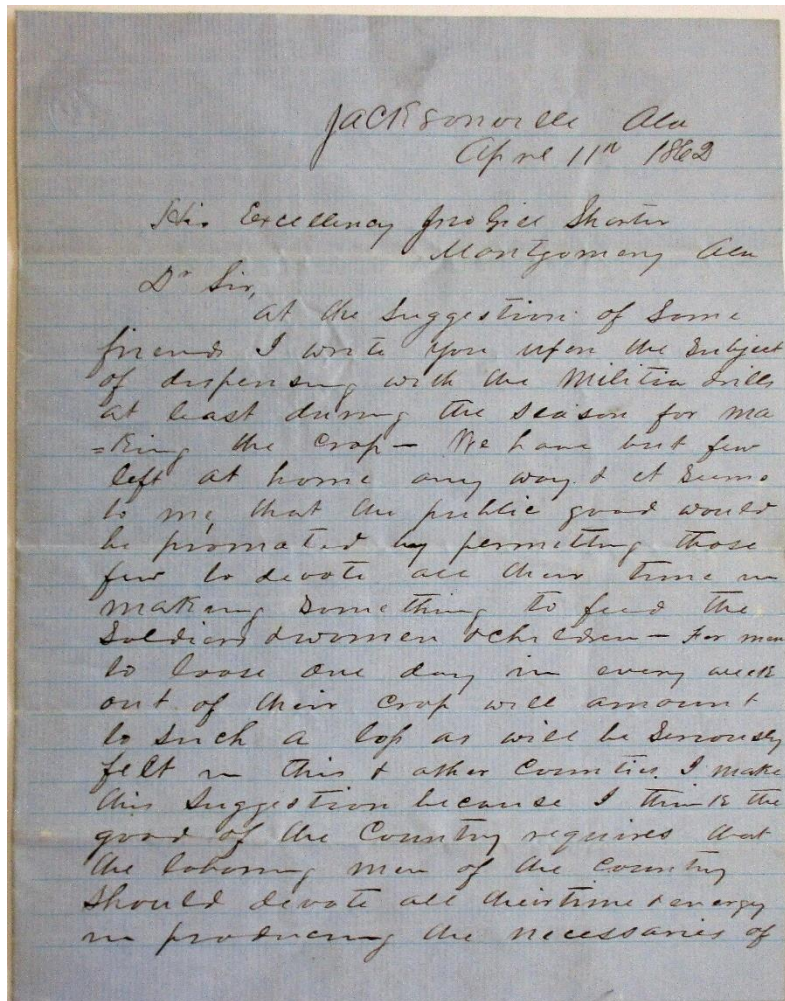 Jacksonville Ala
April 11th 1862
His Excellency Jno Gill Shorter
Montgomery Ala
Dr Sir,
at the suggestion of some
friends I write you upon the subject
of dispensing with the Militia drills
at least during the season for ma
=king the crop - We have but few
left at home any way & it seems
to me, that the public good would
be promoted by permitting those
few to devote all their time in
making something to feed the
Soldiers & women & children - For men
to loose one day in every week
out of their crop will amount
to such a loss as will be seriously
felt in this & other Counties. I make
this suggestion because I think the
good of the Country requires that
the laboring men of the country
should devote all their time & energy
in producing the necessaries of